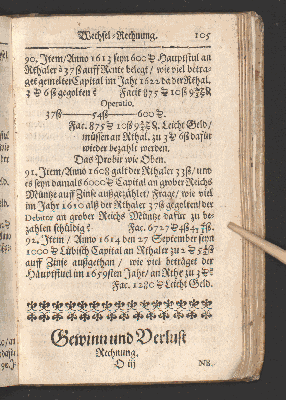 Wechsel-Rechnung. 105
90. Item/ Anno 1613 seyn 600 Hauptstul an
Rthaler à 37ß auff Rente belegt/ wie viel betra-
get gemelter Capital im Jahr 1622 da der Rthal.
3 6ß gegolten? Facit 875 10ß
Operatio.
37ß — 54ß — 600
Fac. 875 10ß Leicht Geld/
müssen an Rthal. zu 3 6ß dafür
wieder bezahlt werden.
Das Probir wie Oben.
91. Item/ Anno 1608 galt der Rthaler 33ß/ und
es seyn damals 6000 Capital an grober Reichs
Müntze auff Zinse außgezählet/ Frage/ wie viel
im Jahr 1610 alß der Rthaler 37ß gegolten/ der
Debitor an grober Reichs Müntze dafür zu be-
zahlen schüldig? Fac. 6727 4ß
92. Item/ Anno 1614 den 27 September seyn
1000 Lübisch Capital an Rthaler zu 2 5ß
auff Zinse außgethan/ wie viel betraget der
Hauptstuel im 1659sten Jahr/ an Rthr zu 3
Fac. Leicht Geld.
Gewinn und Verlust
Rechnung.
O iij NB.